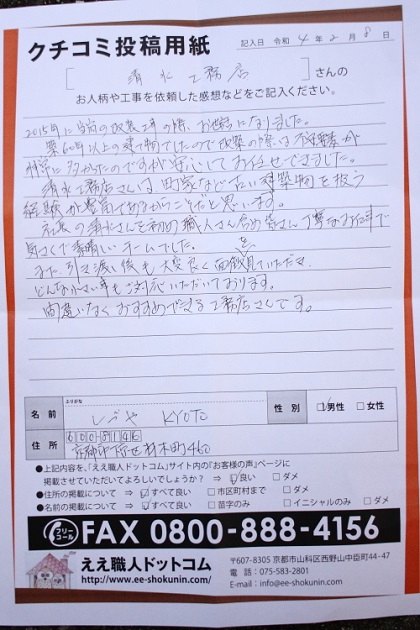 クチコミ投稿用紙
記入日 令和 4年 2月 8日
清水工務店 さんの
お人柄や工事を依頼した感想などをご記入ください。
2015年に当店の改装工事の際、お世話になりました。
築60年以上の建物でしたので改築の際は不確定要素が
非常に多かったのですが安心してお任せできました。
清水工務店さんは、町家など古い建築物を扱う
経験が豊富であるからこそだと思います。
社長の清水さんを初め職人さん含め皆さん丁寧なお仕事で
気さくで素晴しいチームでした。
また引き渡し後も大変良く面倒を見ていただき、
どんな小さい事もご対応いただいております。
間違いなくおすすめできる工務店さんです。
ふりがな
名前 しづや KYOTO 性別 ☑男性 □女性
住所 600-8146
京都市下京区材木町460
●上記内容を、「ええ職人ドットコム」サイト内の「お客様の声」ページに
掲載させていただいてよろしいでしょうか? ⇒ ☑良い □ダメ
●住所の掲載について ⇒ ☑すべて良い □市区町村まで □ダメ
●名前の掲載について ⇒ ☑すべて良い □苗字のみ □イニシャルのみ □ダメ
フリーコール FAX 0800-888-4156
ええ職人ドットコム
http://www.ee-shokunin.com/
〒607-8305 京都市山科区西野山中臣町44-47
電話:075-583-2801
E-mail:info@ee-shokunin.com